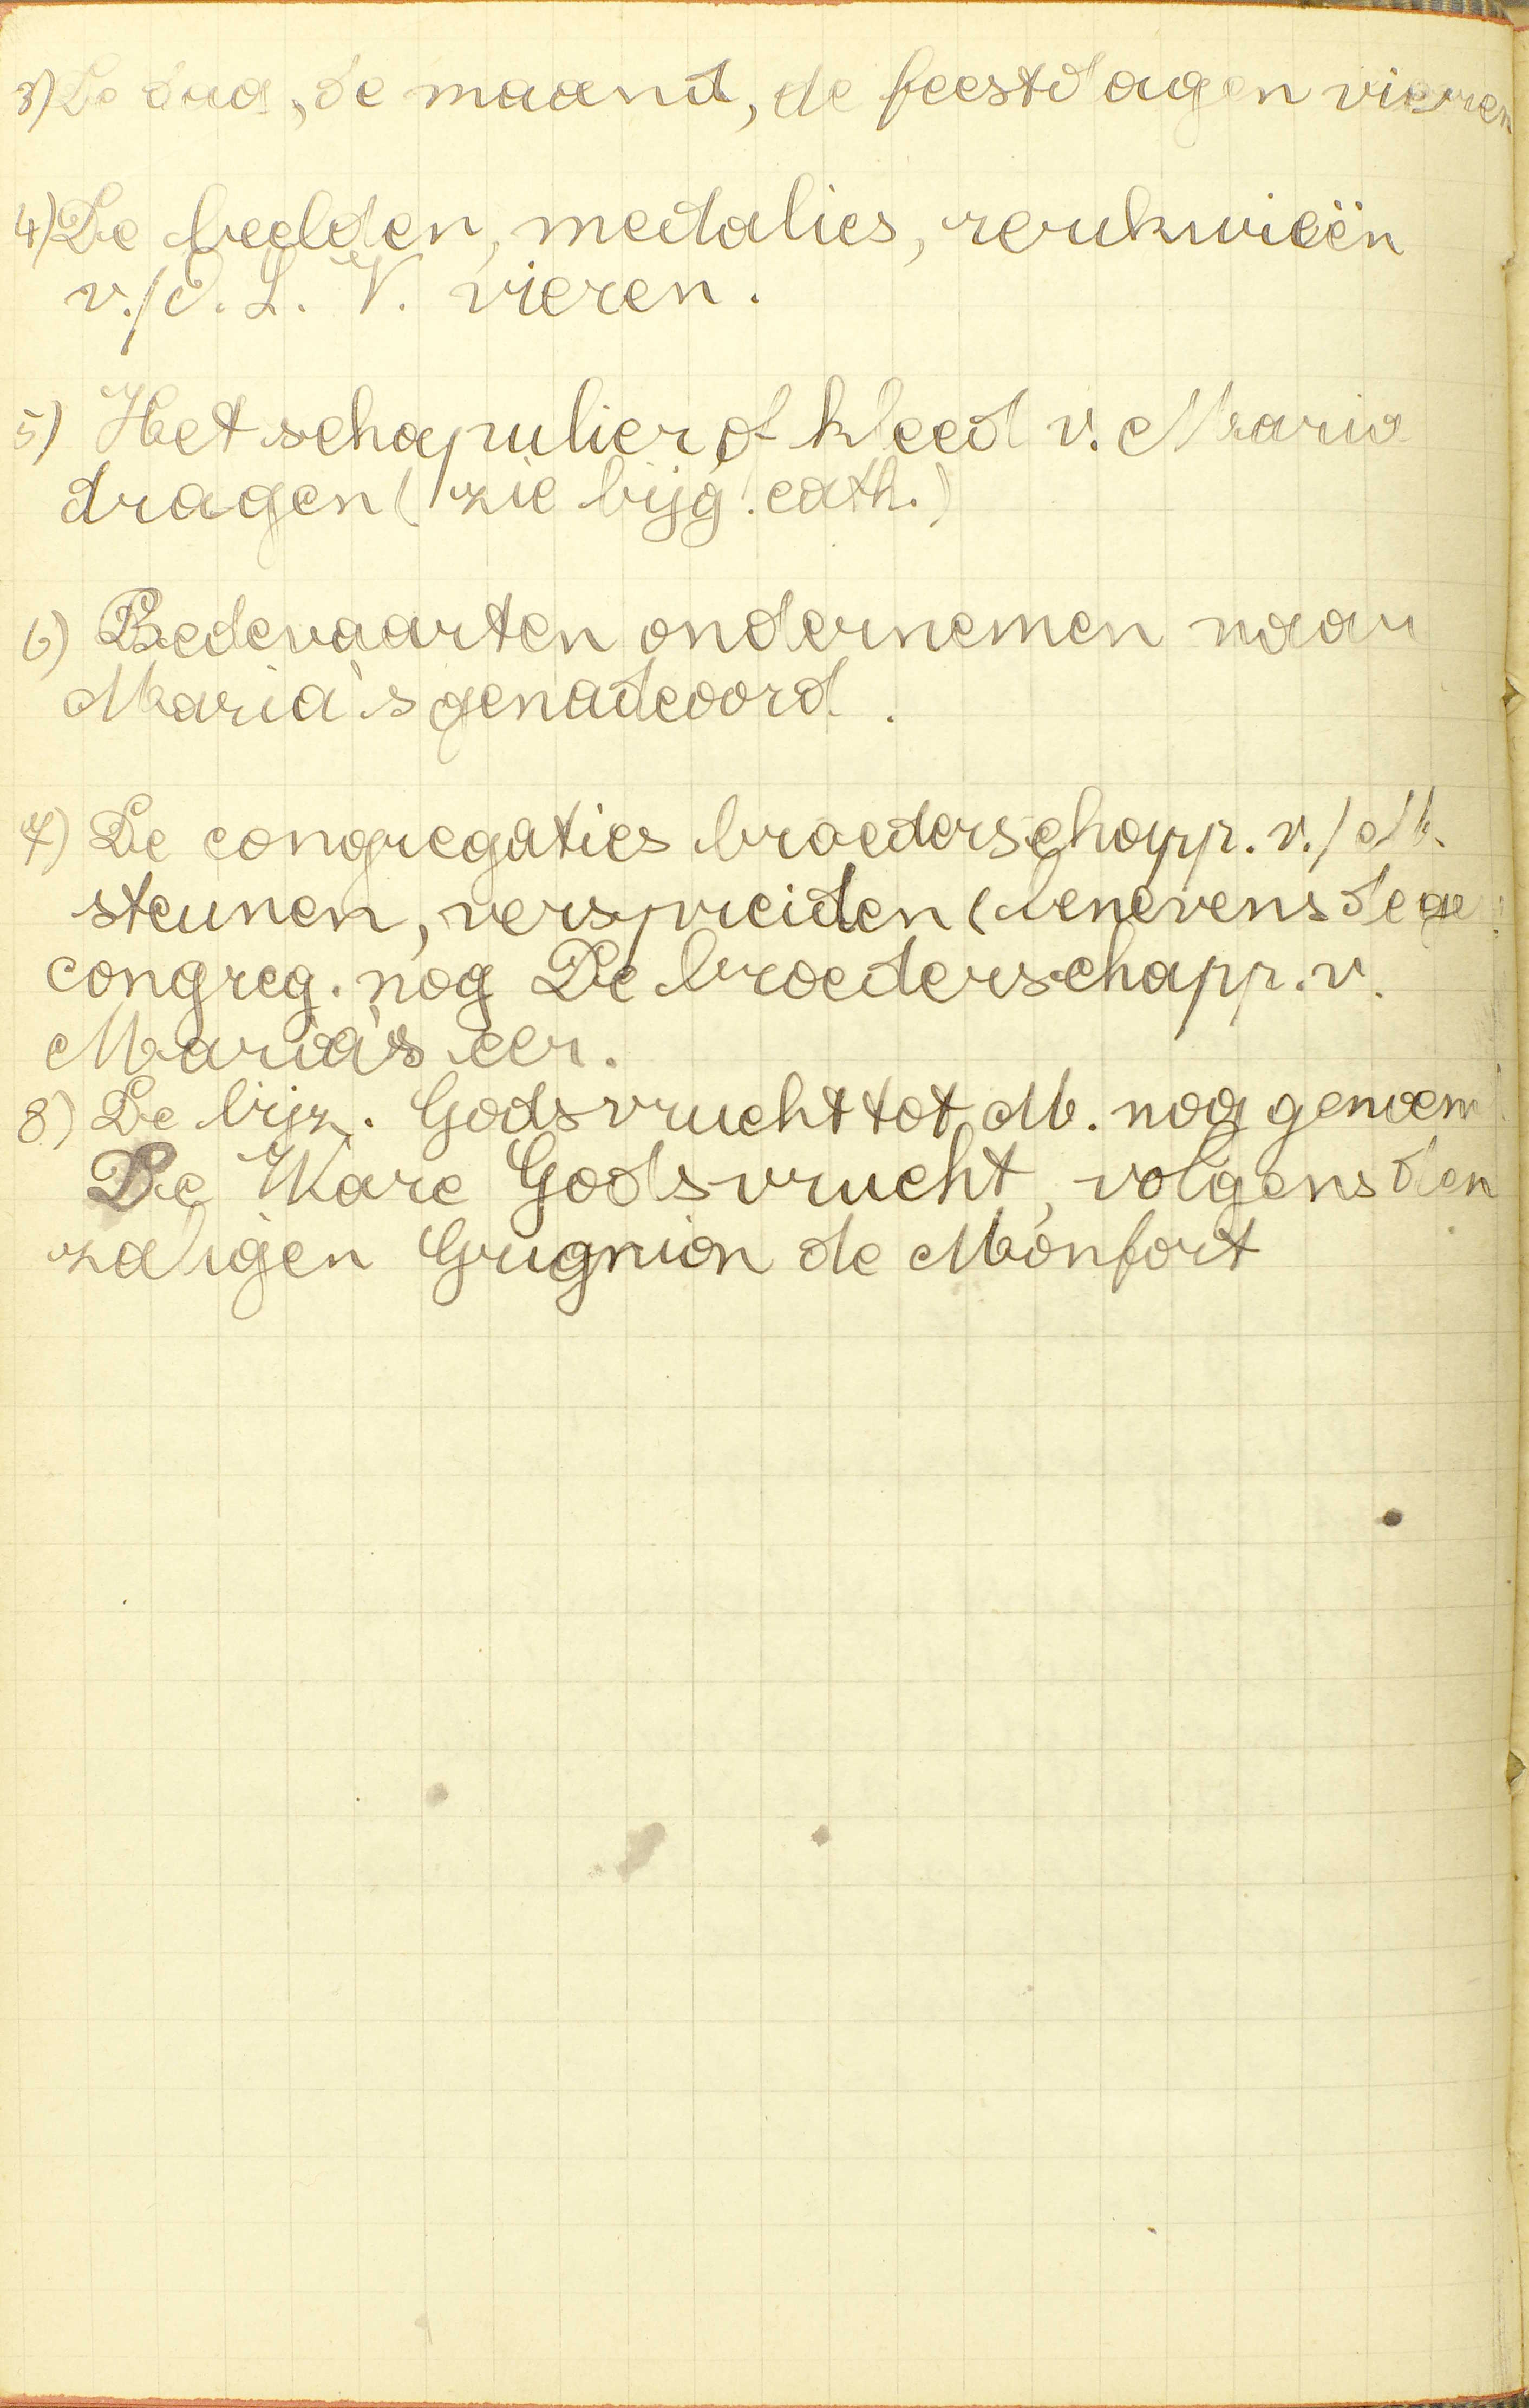 3) De dag, de maand, de feestdagen vieren
4) De beelden, medalies, reukwieën
v./O. L. V. vieren.
5) Het schapulier of kleed v. Maria
dragen (zie bijg. cath.)
6) Bedevaarten ondernemen naar
Maria's genadeoord.
7) De congregaties broederschapp. v./M.
steunen, verspreiden (benevens de
congreg. nog De broederschapp. v.
Maria's eer.
8) De bijz. Godsvrucht tot M. nog genoem
De Ware Godsvrucht, volgens den
zaligen Grignion de Monfort